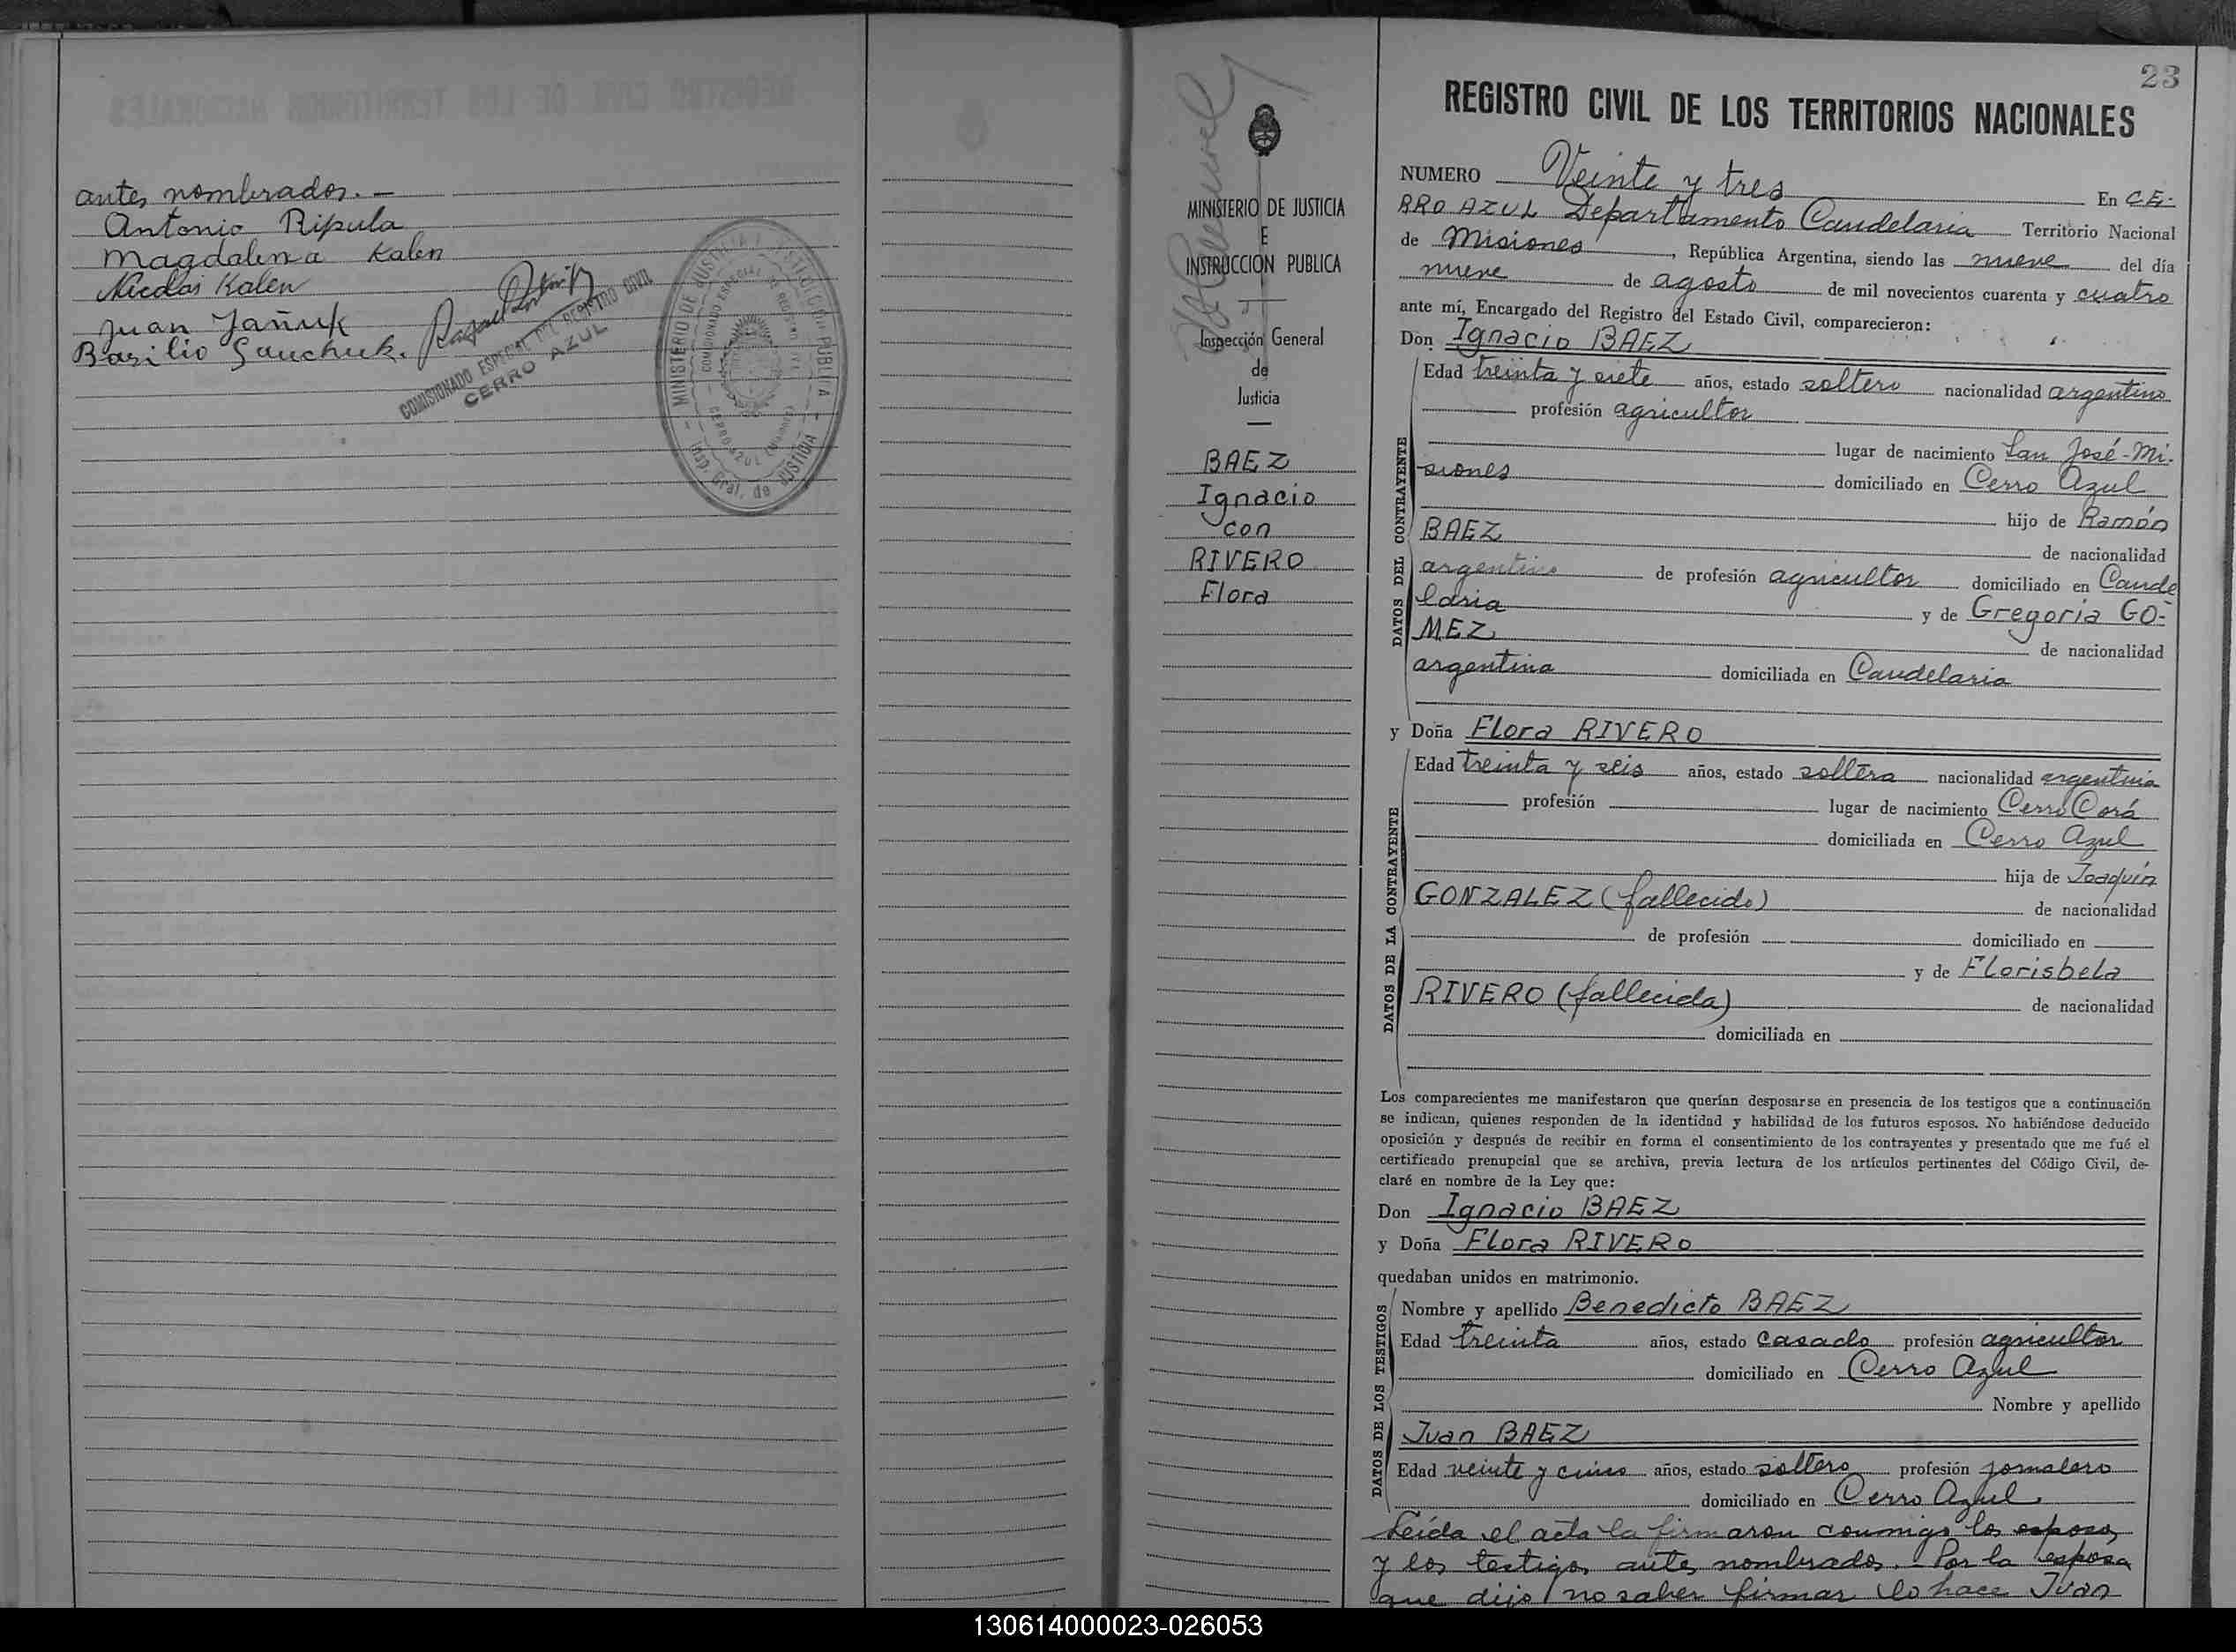 antes nombrados. —
Antonio Ripula
Magdalena Kalen
Nicolás Kalen
Juan Jañuk
Basilio Sauchuk.
COMISIONADO ESPECIAL DEL REGISTRO CIVIL
CERRO AZUL
MINISTERIO DE JUSTICIA E INSTRUCCION PUBLICA
Insp. Gral. de JUSTICIA
MINISTERIO DE JUSTICIA
E
INSTRUCCION PUBLICA
Inspección General
de
Justicia
BAEZ
Ignacio
con
RIVERO
Flora
23
REGISTRO CIVIL DE LOS TERRITORIOS NACIONALES
NUMERO Veinte y tres En CE-
RRO AZUL Departamento Candelaria Territorio Nacional
de Misiones, República Argentina, siendo las nueve del día
nueve de agosto de mil novecientos cuarenta y cuatro
ante mí, Encargado del Registro del Estado Civil, comparecieron:
Don Ignacio BAEZ
DATOS DEL CONTRAYENTE
Edad treinta y siete años, estado soltero nacionalidad argentino
profesión agricultor
lugar de nacimiento San José-Mi-
siones domiciliado en Cerro Azul
hijo de Ramón
BAEZ de nacionalidad
argentino de profesión agricultor domiciliado en Cande
laria y de Gregoria GO-
MEZ de nacionalidad
argentina domiciliada en Candelaria
y Doña Flora RIVERO
DATOS DE LA CONTRAYENTE
Edad treinta y seis años, estado soltera nacionalidad argentina
profesión lugar de nacimiento Cerro Corá
domiciliada en Cerro Azul
hija de Joaquín
GONZALEZ (fallecido) de nacionalidad
de profesión domiciliado en
y de Florisbela
RIVERO (fallecida) de nacionalidad
domiciliada en
Los comparecientes me manifestaron que querían desposarse en presencia de los testigos que a continuación
se indican, quienes responden de la identidad y habilidad de los futuros esposos. No habiéndose deducido
oposición y después de recibir en forma el consentimiento de los contrayentes y presentado que me fué el
certificado prenupcial que se archiva, previa lectura de los artículos pertinentes del Código Civil, de-
claré en nombre de la Ley que:
Don Ignacio BAEZ
y Doña Flora RIVERO
quedaban unidos en matrimonio.
DATOS DE LOS TESTIGOS
Nombre y apellido Benedicto BAEZ
Edad treinta años, estado casado profesión agricultor
domiciliado en Cerro Azul
Nombre y apellido
Juan BAEZ
Edad veinte y cinco años, estado soltero profesión jornalero
domiciliado en Cerro Azul.
Leída el acta la firmaron conmigo los esposos
y los testigos antes nombrados. Por la esposa
que dijo no saber firmar lo hace Juan
130614000023-026053